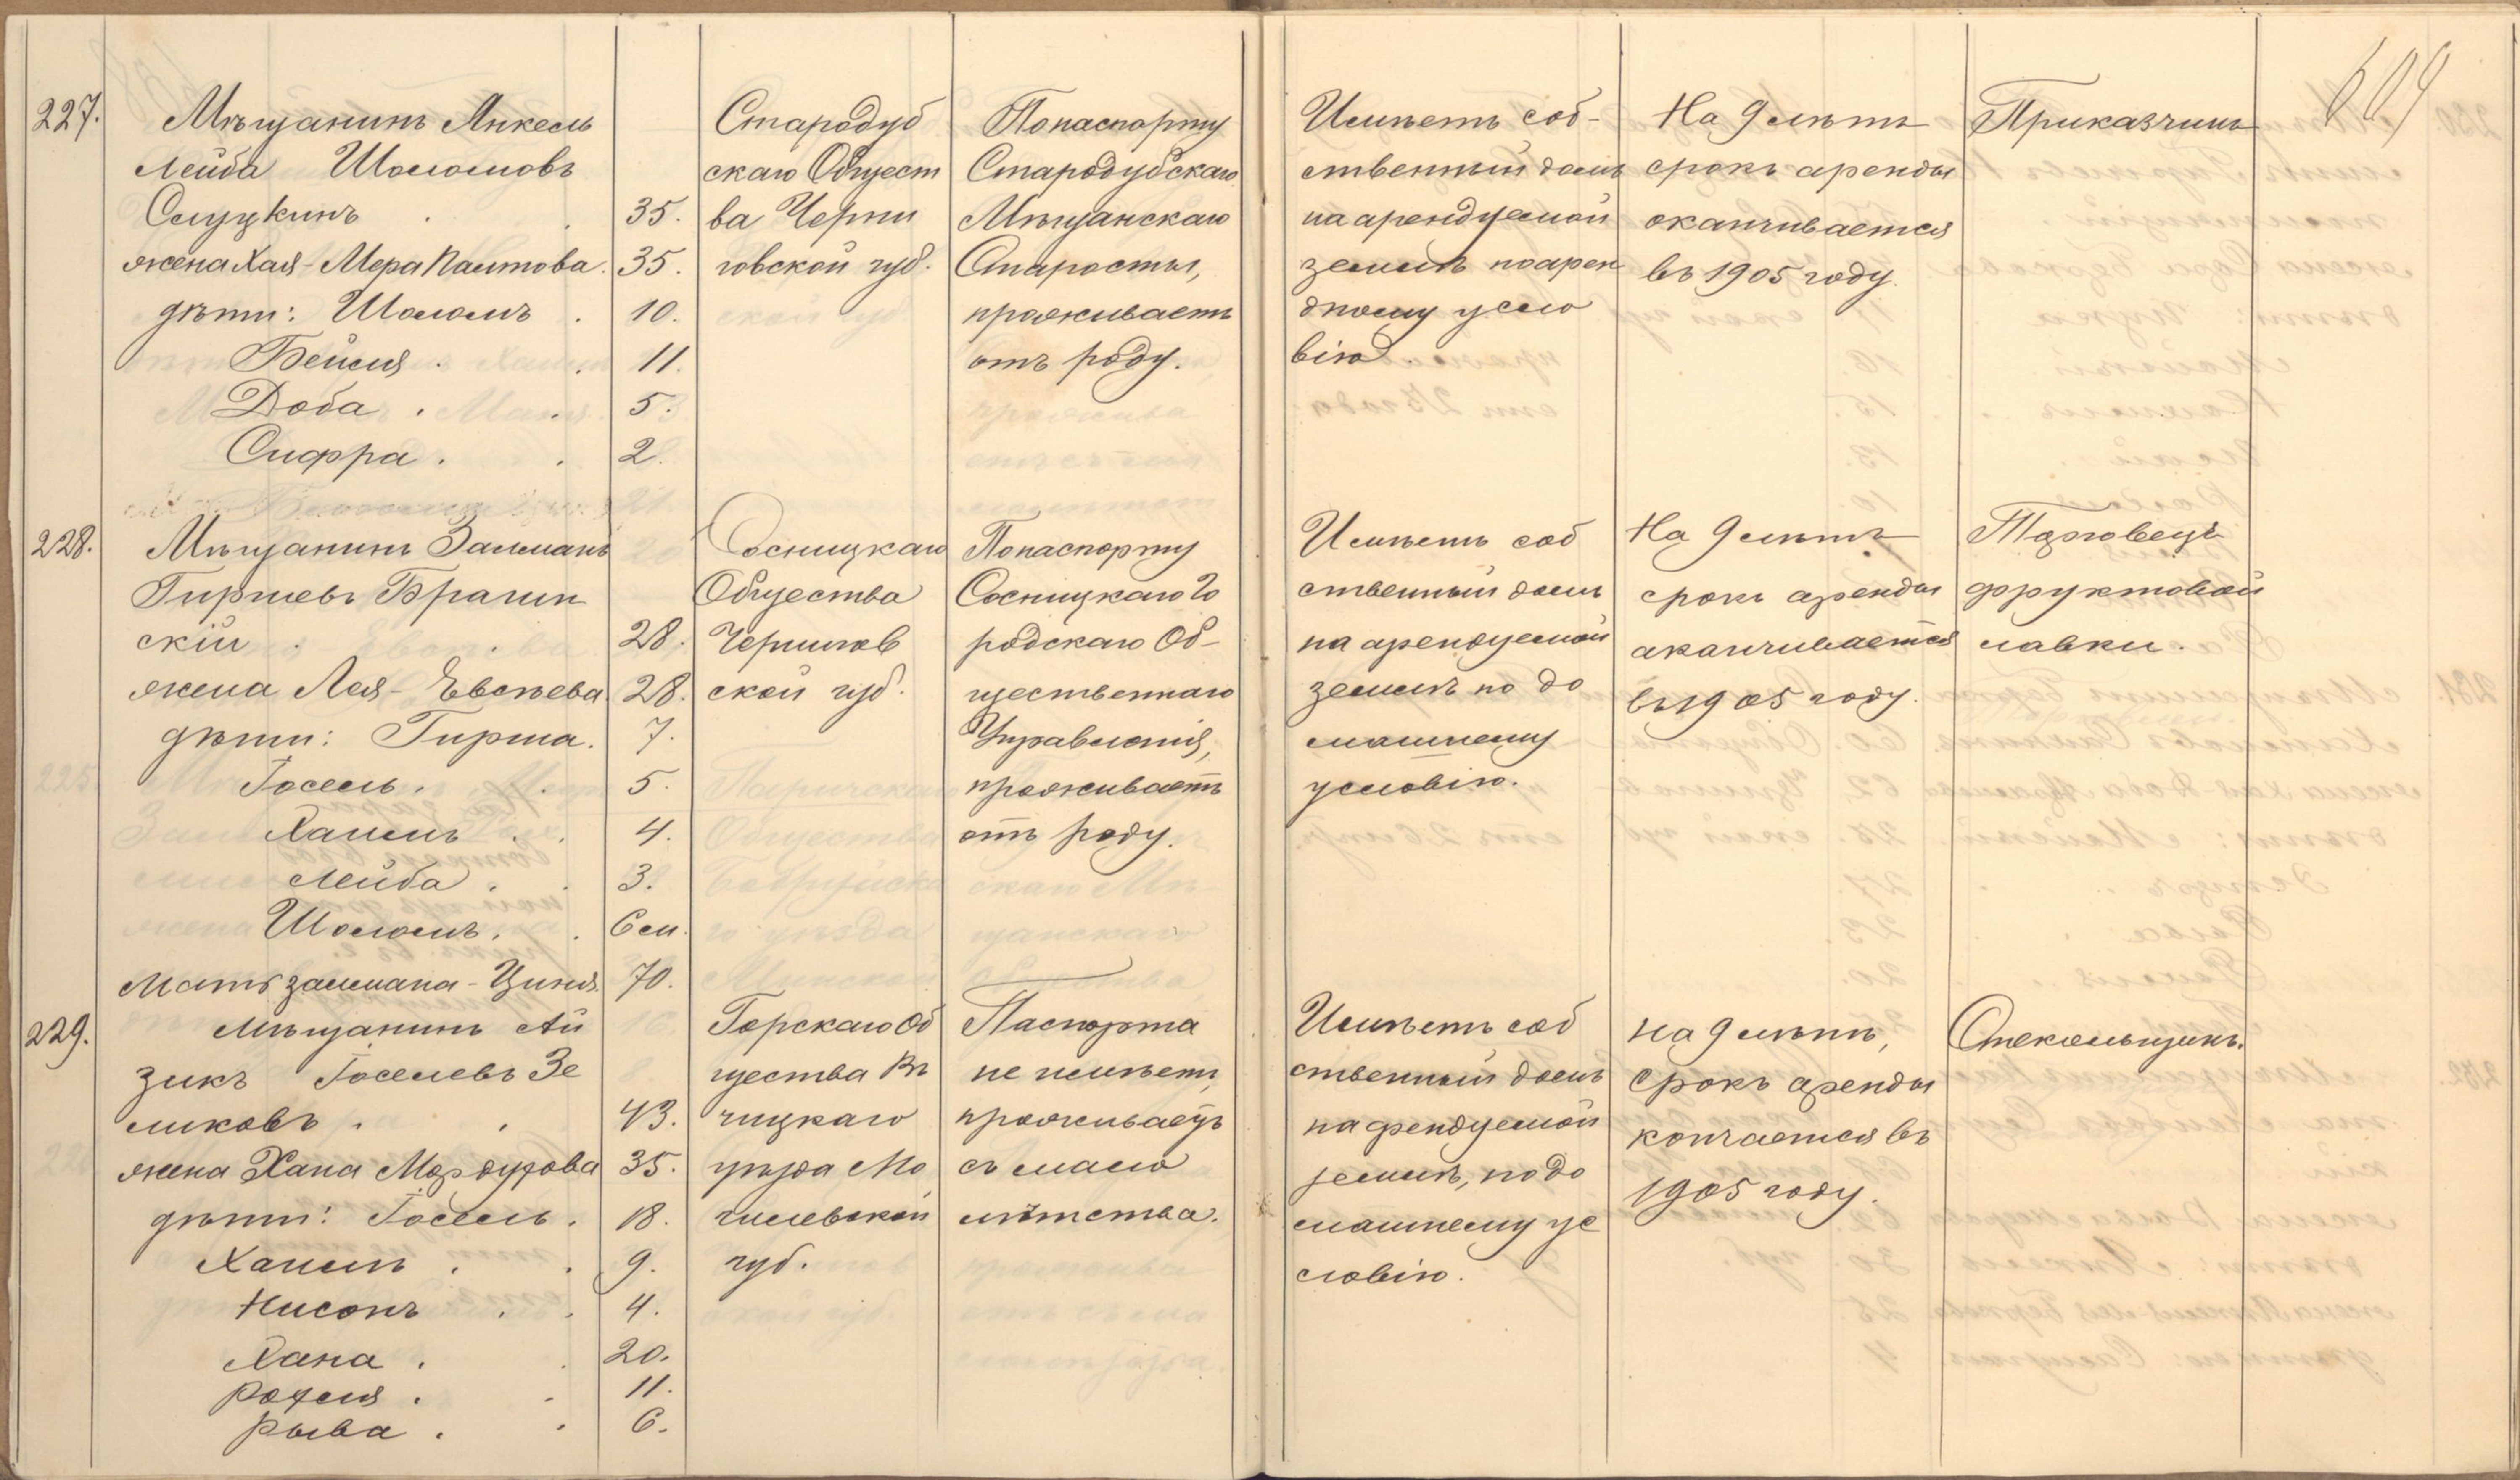 604
227.
Мѣщанинъ Янкель
Лейба Шоломовъ
Слуцкинъ . . 35.
жена Хая-Мера 35.
дѣти: Шоломъ . 10.
Бейля . . 11.
Доба . . 5.
Сифра . . 2.
Стародуб
скаго Общест
ва Черни
говской губ.
По паспорту
Стародубскаго
Мѣщанскаго
Старосты,
проживаетъ
отъ роду.
Имѣетъ соб-
ственный домъ
на арендуемой
землѣ по арен
дному усло
вію.
На 9 лѣтъ
срокъ аренды
оканчивается
въ 1905 году.
Приказчикъ
228.
Мѣщанинъ Залманъ
Гиршевъ Брагин
скій . . 28.
жена Лея-Евсѣева 28.
дѣти: Гирша. 7.
Іосель. . 5.
Хаимъ . . 4.
Лейба . . 3.
Шоломъ. . 6 м.
Мать Залмана - Циня. 70.
Сосницкаго
Общества
Чернигов
ской губ.
По паспорту
Сосницкаго Го
родскаго Об-
щественнаго
Управленія,
проживаетъ
отъ роду.
Имѣетъ соб
ственный домъ
на арендуемой
землѣ по до
машнему
условію.
На 9 лѣтъ
срокъ аренды
аканчивается
въ 1905 году.
Торговецъ
фруктовой
лавки.
229.
Мѣщанинъ Ай
зикъ Іоселевъ Зе
ликовъ . . 43.
жена Хана Мордухова 35.
дѣти: Іосель. 18.
Хаимъ . . 9.
Нисонъ . . 4.
Хана . . 20.
Рохля . . 11.
Рыва . . 6.
Горскаго Об
щества
уѣзда Мо
гилевской
губ.
Паспорта
не имѣетъ,
проживаетъ
съ мало
лѣтства.
Имѣетъ соб
ственный домъ
на арендуемой
землѣ, по до
машнему ус
ловію.
На 9 лѣтъ,
срокъ аренды
кончается въ
1905 году.
Стекольщикъ.